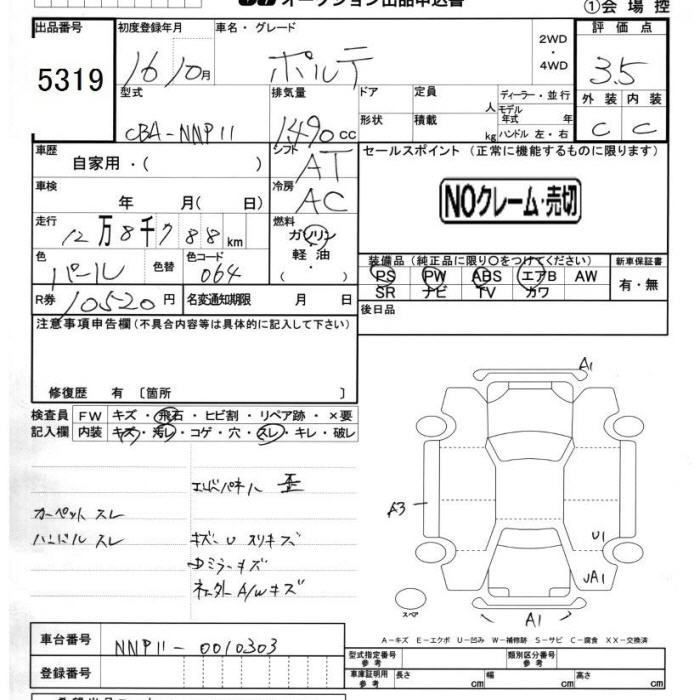 オークション出品申込書
①会場控
出品番号 初度登録年月 車名・グレード 評価点
5319 16 10月 ポルテ 2WD・4WD 3.5
型式 排気量 ドア 定員 人 ディーラー・並行 外装 内装
CBA-NNP11 1490cc 形状 積載 kg モデル年式 年 C C
ハンドル 左・右
車歴 自家用・( ) シフト AT セールスポイント (正常に機能するものに限ります)
車検 年 月( 日) 冷房 AC NOクレーム・売切
走行 12万8千788km 燃料 ガソリン・軽油・( )
色 パール 色替 色コード 064 装備品 (純正品に限り○をつけてください) 新車保証書
PS PW ABS エアB AW 有・無
SR ナビ TV カワ
R券 10520円 名変通知期限 月 日 後日品
注意事項申告欄 (不具合内容等は具体的に記入して下さい)
修復歴 有 〔箇所 〕
検査員 FW キズ・飛石・ヒビ割・リペア跡・×要
記入欄 内装 キズ・汚レ・コゲ・穴・スレ・キレ・破レ
エンドパネル 歪
カーペット スレ
ハンドル スレ キズ・U スリキズ
ミラーキズ
A/Wキズ
A1
A3
U1
UA1
A1
スペア
A-キズ E-エクボ U-凹み W-補修跡 S-サビ C-腐食 XX-交換済
車台番号 NNP11-0010303 型式指定番号 参考 類別区分番号 参考
登録番号 車庫証明用 参考 長さ cm 幅 cm 高さ cm